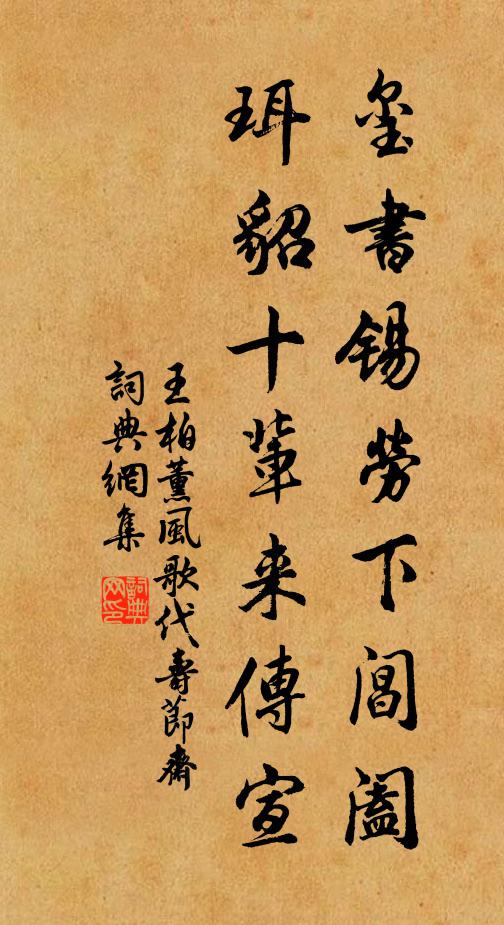 璽書錫勞下閶闔
珥貂十輩来傳宣
王柏薰風歌代壽節齋
詞典網集
詞典網印